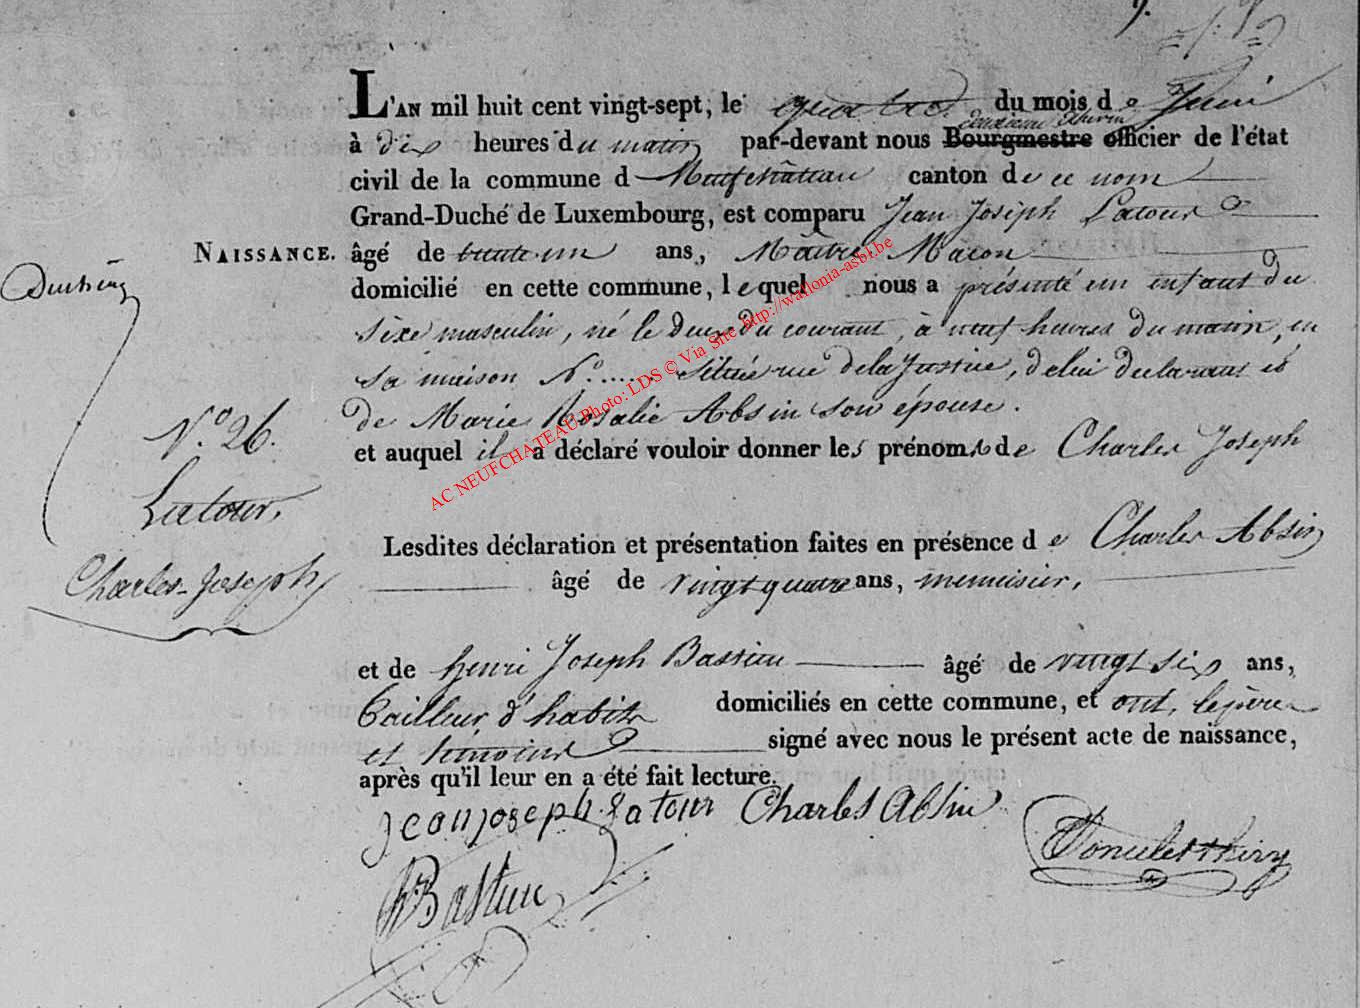 L'AN mil huit cent vingt-sept, le quatre du mois de Juin
deuxième Echevin
à dix heures du matin par-devant nous Bourgmestre officier de l'état
civil de la commune d Neufchâteau canton de ce nom
Grand-Duché de Luxembourg, est comparu Jean Joseph Latour
NAISSANCE. âgé de trente un ans, Maître Macon
domicilié en cette commune, lequel nous a présenté un enfant du
sexe masculin, né le deux du courant, à neuf heures du matin, en
sa maison N.° ..... située rue de la Justice, de lui déclarant et
de Marie Rosalie Absin son épouse.
et auquel il a déclaré vouloir donner les prénoms de Charles Joseph
N.° 26.
Latour,
Charles-Joseph
Lesdites déclaration et présentation faites en présence de Charles Absin
âgé de vingt quatre ans, menuisier,
et de henri Joseph Bastien âgé de vingt six ans,
tailleur d'habits domiciliés en cette commune, et ont, le père
et témoins signé avec nous le présent acte de naissance,
après qu'il leur en a été fait lecture.
jean joseph Latour Charles Absin
h Bastien
AC NEUFCHATEAU Photo: LDS © Via Site http://wallonia-asbl.be